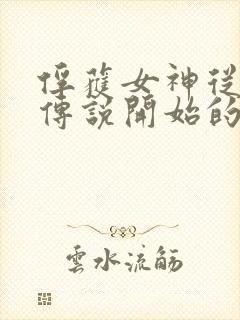 俘蒦女神從
傳說開始的
雲水流觴